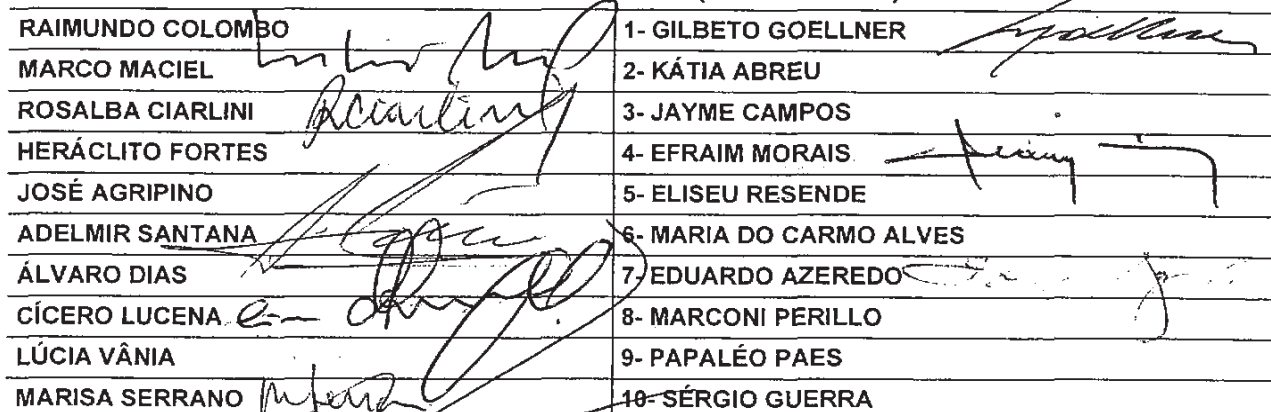 RAIMUNDO COLOMBO
1- GILBETO GOELLNER
MARCO MACIEL
2- KÁTIA ABREU
ROSALBA CIARLINI RCiarlini
3- JAYME CAMPOS
HERÁCLITO FORTES
4- EFRAIM MORAIS
JOSÉ AGRIPINO
5- ELISEU RESENDE
ADELMIR SANTANA
6- MARIA DO CARMO ALVES
ÁLVARO DIAS
7- EDUARDO AZEREDO
CÍCERO LUCENA
8- MARCONI PERILLO
LÚCIA VÂNIA
9- PAPALÉO PAES
MARISA SERRANO
10- SÉRGIO GUERRA